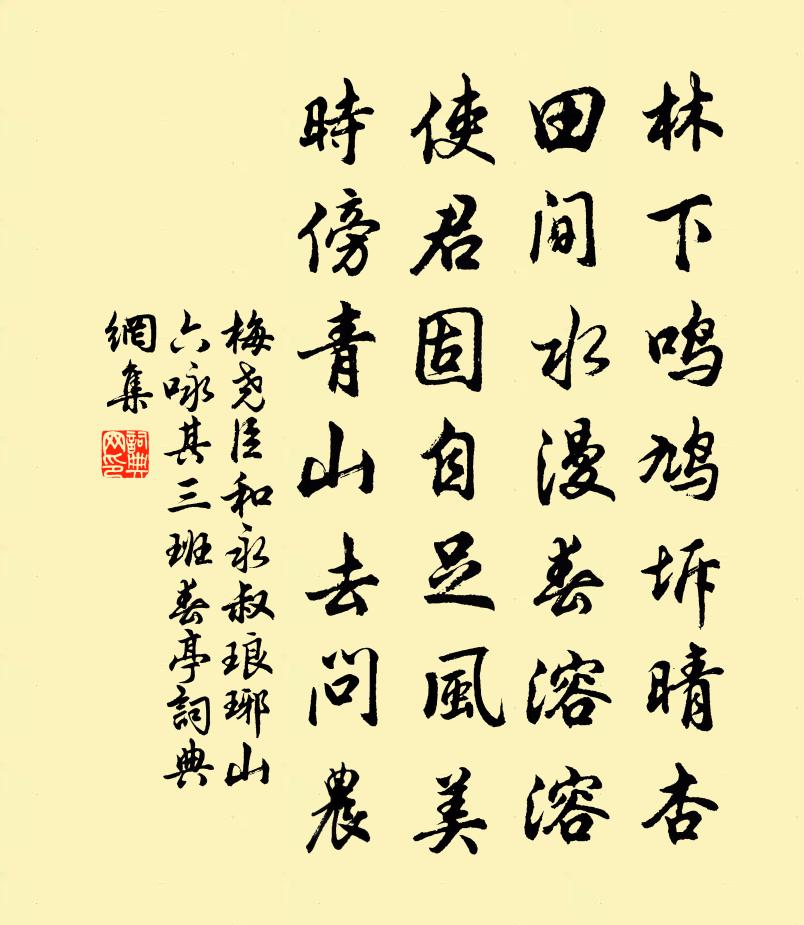 林下鸣鸠坼晴杏
田间水漫春溶溶
使君固自足風美
時傍青山去问農
梅尧臣和永叔琅琊山
六咏其三班春亭詞典
網集
詞典网印